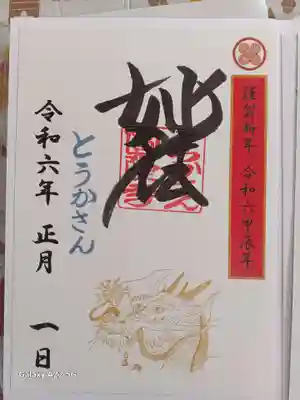 謹賀新年 令和六甲辰年
妙法
とうかさん
令和六年 正月 一日
Galaxy A7